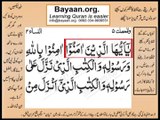 Bayaan.org.
Learning Quran is easier
النساء ٤
والمحصنت ٥
يٰۤاَيُّهَا الَّذِيْنَ اٰمَنُوْۤا اٰمِنُوْا بِاللّٰهِ
وَرَسُوْلِهٖ وَالْكِتٰبِ الَّذِيْ نَزَّلَ عَلٰى
رَسُوْلِهٖ وَالْكِتٰبِ الَّذِيْۤ اَنْزَلَ